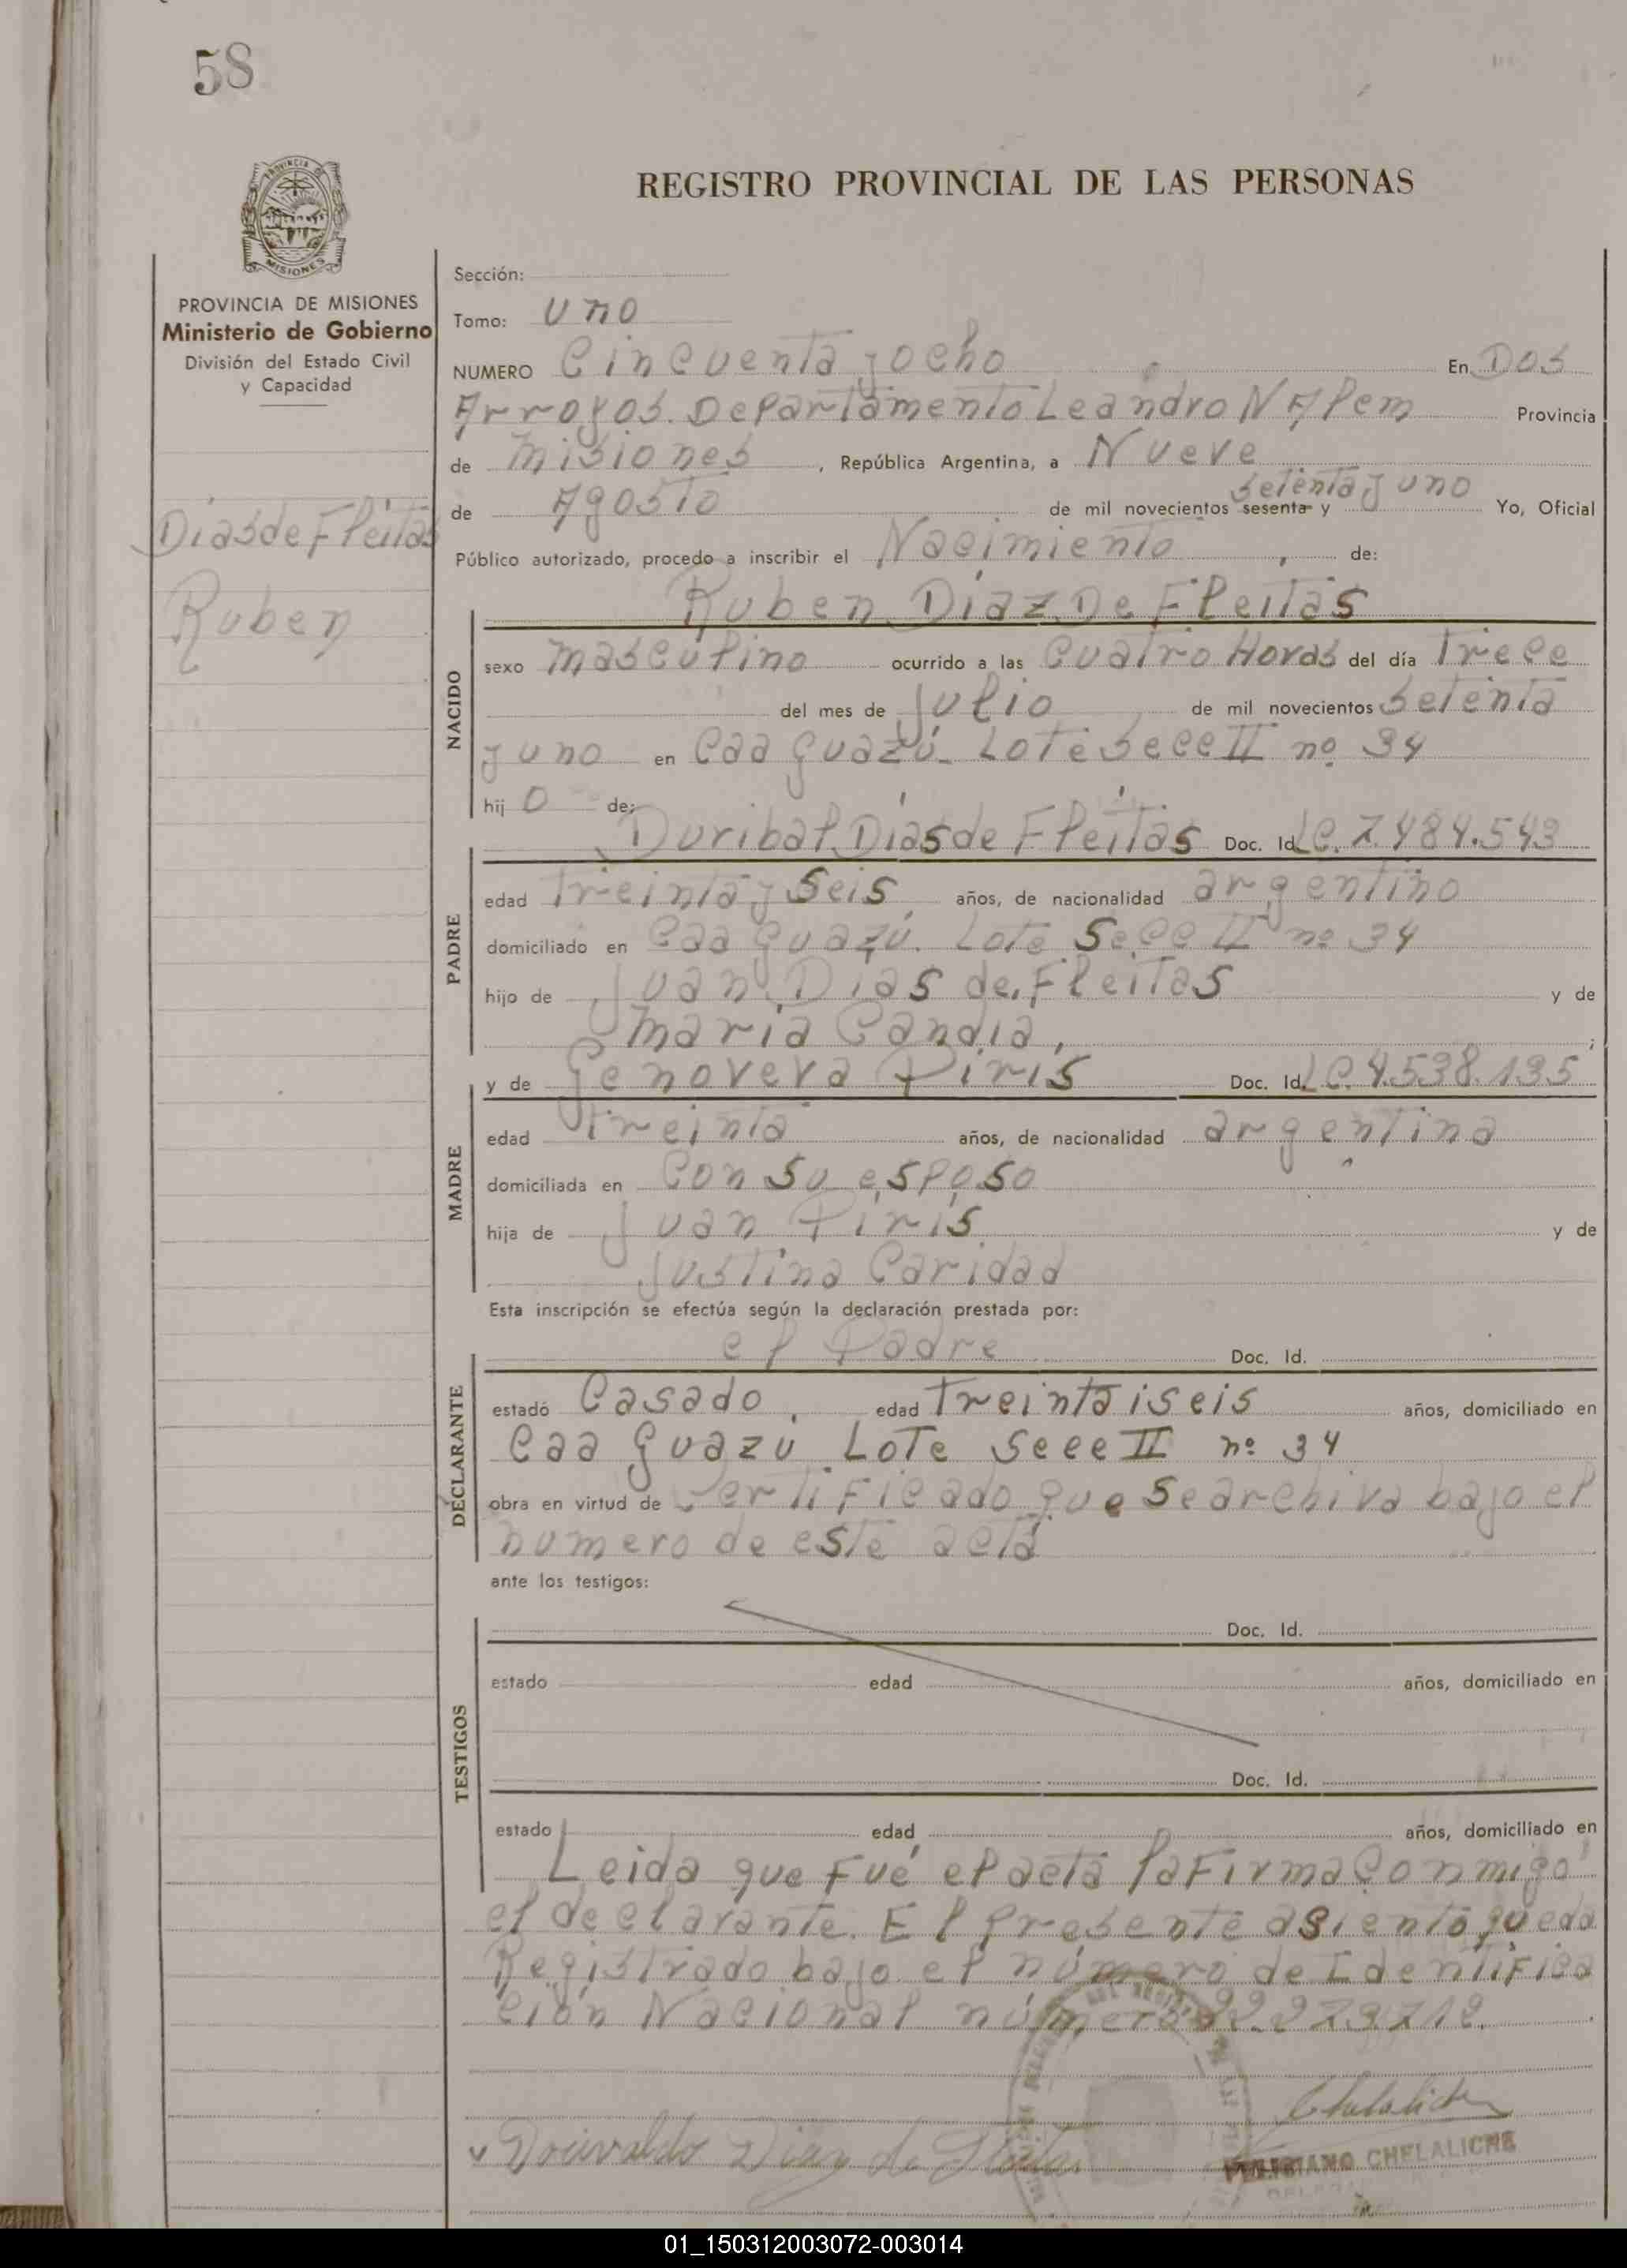 58
PROVINCIA DE
MISIONES
REGISTRO PROVINCIAL DE LAS PERSONAS
PROVINCIA DE MISIONES
Ministerio de Gobierno
División del Estado Civil
y Capacidad
Dias de Fleitas
Ruben
Sección:
Tomo: uno
NUMERO Cincuenta y ocho En Dos
Arroyos. Departamento Leandro N Alem Provincia
de Misiones, República Argentina, a Nueve
de Agosto de mil novecientos sesenta y setenta y uno Yo, Oficial
Público autorizado, procedo a inscribir el Nacimiento, de:
Ruben Diaz De Fleitas
NACIDO
sexo masculino ocurrido a las Cuatro Horas del día Trece
del mes de Julio de mil novecientos Setenta
y uno en Caa Guazú. Lote Secc II nº 34
hijo de:
Duribal Dias de Fleitas Doc. Id. LC. 7.484.543
PADRE
edad Treinta y Seis años, de nacionalidad argentino
domiciliado en Caa Guazú. Lote Secc II nº 34
hijo de Juan Dias de Fleitas y de
Maria Candia,;
y de Genoveva Piris Doc. Id. LC. 4.538.135
MADRE
edad Treinta años, de nacionalidad argentina
domiciliada en Con su esposo
hija de Juan Piris y de
Justina Caridad
Esta inscripción se efectúa según la declaración prestada por:
el Padre Doc. Id.
DECLARANTE
estado Casado, edad Treinta i seis años, domiciliado en
Caa Guazú Lote Secc II nº 34
obra en virtud de Certificado que se archiva bajo el
numero de este acta
ante los testigos:
Doc. Id.
TESTIGOS
estado edad años, domiciliado en
Doc. Id.
estado edad años, domiciliado en
Leida que fué el acta la firma Conmigo
el declarante. El presente asiento queda
Registrado bajo el número de Identifica
ción Nacional número 22.273.712.
Chelaliche
Dorivaldo Diaz de Fleitas
CHELALICHE
01_150312003072-003014